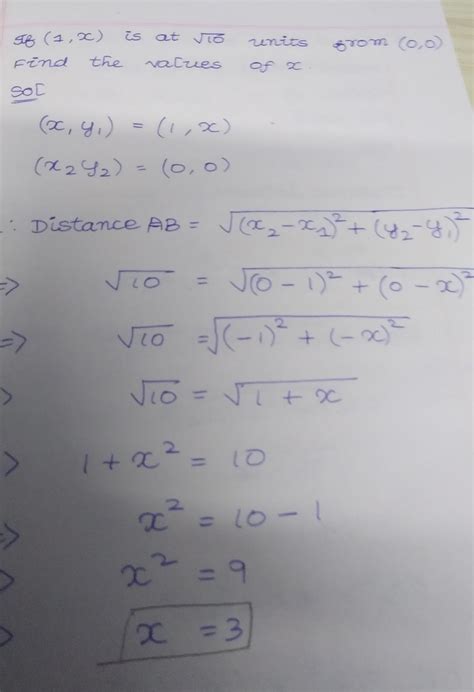 If (1, x) is at √10 units from (0,0)
Find the values of x.
Sol
(x, y₁) = (1, x)
(x₂ y₂) = (0, 0)
∴ Distance AB = √(x₂ - x₁)² + (y₂ - y₁)²
=> √10 = √(0 - 1)² + (0 - x)²
=> √10 = √(-1)² + (-x)²
> √10 = √1 + x
> 1 + x² = 10
=> x² = 10 - 1
> x² = 9
> x = 3